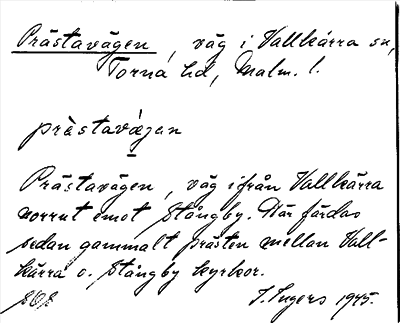 Prästavägen, väg i Vallkärra sn,
Torna hd, Malm. l.
prästavägan
Prästavägen, väg ifrån Vallkärra
norrut emot Stångby. Där färdas
sedan gammalt prästen mellan Vall-
kärra o. Stångby kyrkor.
I. Ingers 1945.